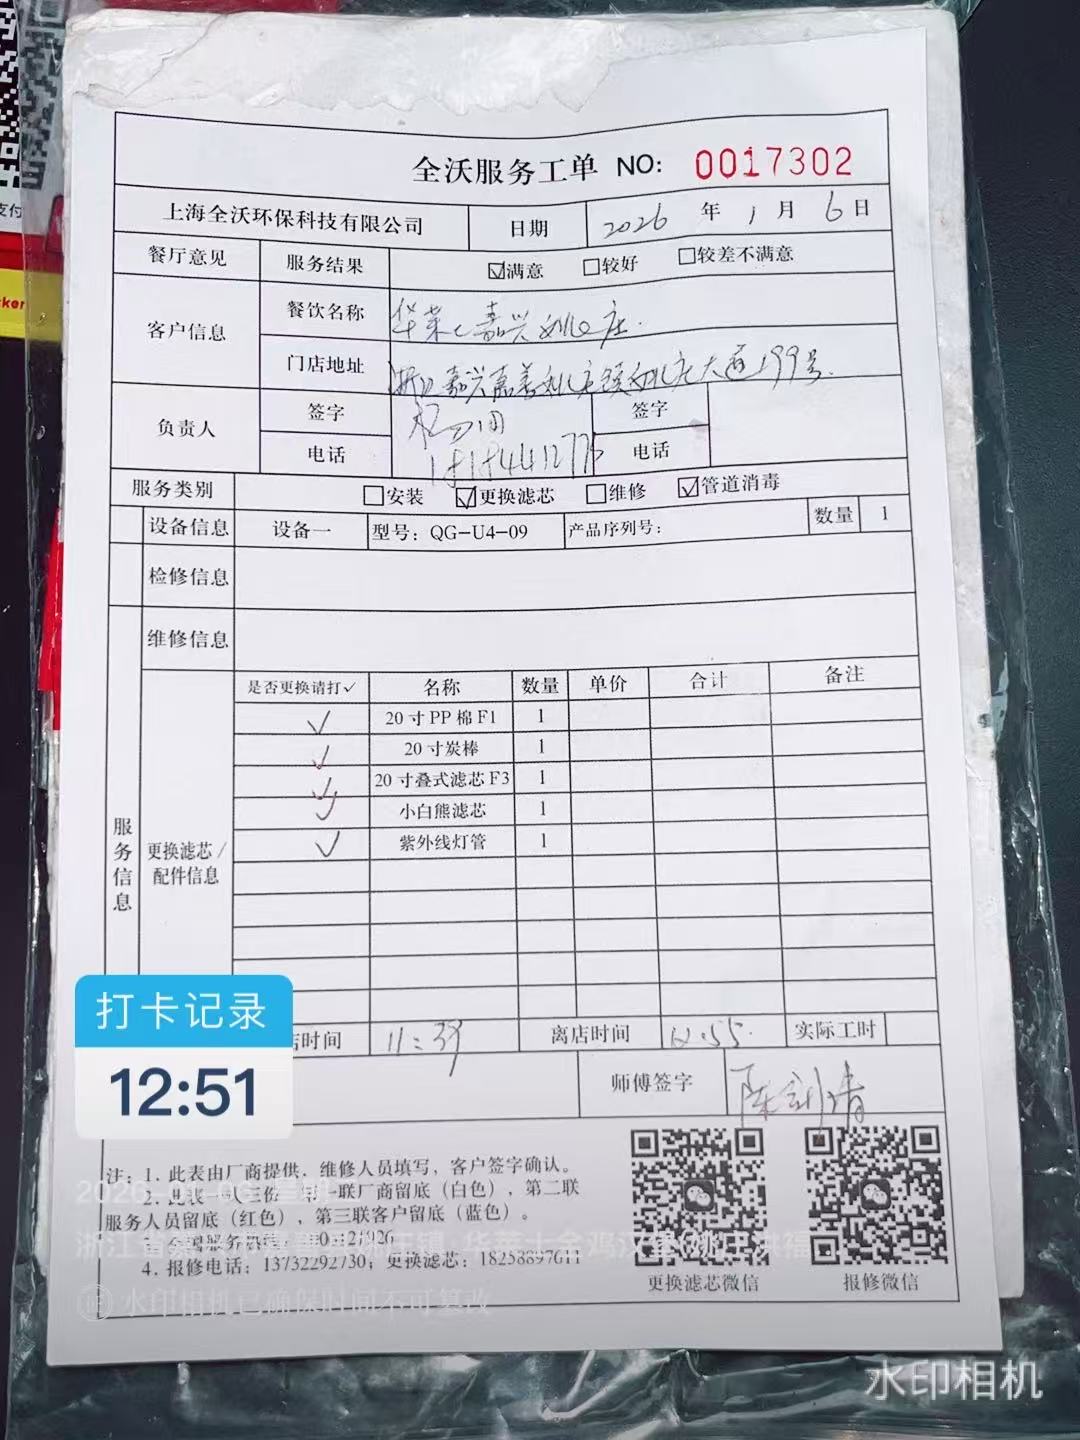 全沃服务工单 NO: 0017302
上海全沃环保科技有限公司 日期 2026 年 1 月 6 日
餐厅意见 服务结果 ☑满意 □较好 □较差不满意
客户信息 餐饮名称 华莱士嘉兴姚庄
门店地址 浙江嘉兴嘉善姚庄镇姚庄大道199号
负责人 签字 签字
电话 电话
服务类别 □安装 ☑更换滤芯 □维修 ☑管道消毒
设备信息 设备一 型号: QG-U4-09 产品序列号: 数量 1
检修信息
维修信息
服务信息
更换滤芯/配件信息
是否更换请打✓ 名称 数量 单价 合计 备注
✓ 20寸PP棉F1 1
✓ 20寸炭棒 1
✓ 20寸叠式滤芯F3 1
✓ 小白熊滤芯 1
✓ 紫外线灯管 1
店时间 11:39 离店时间 12:55 实际工时
师傅签字
打卡记录
12:51
注: 1. 此表由厂商提供、维修人员填写，客户签字确认。
2. 此表一式三份，第一联厂商留底（白色），第二联
服务人员留底（红色），第三联客户留底（蓝色）。
4. 报修电话: 13732292730; 更换滤芯:
更换滤芯微信 报修微信
水印相机